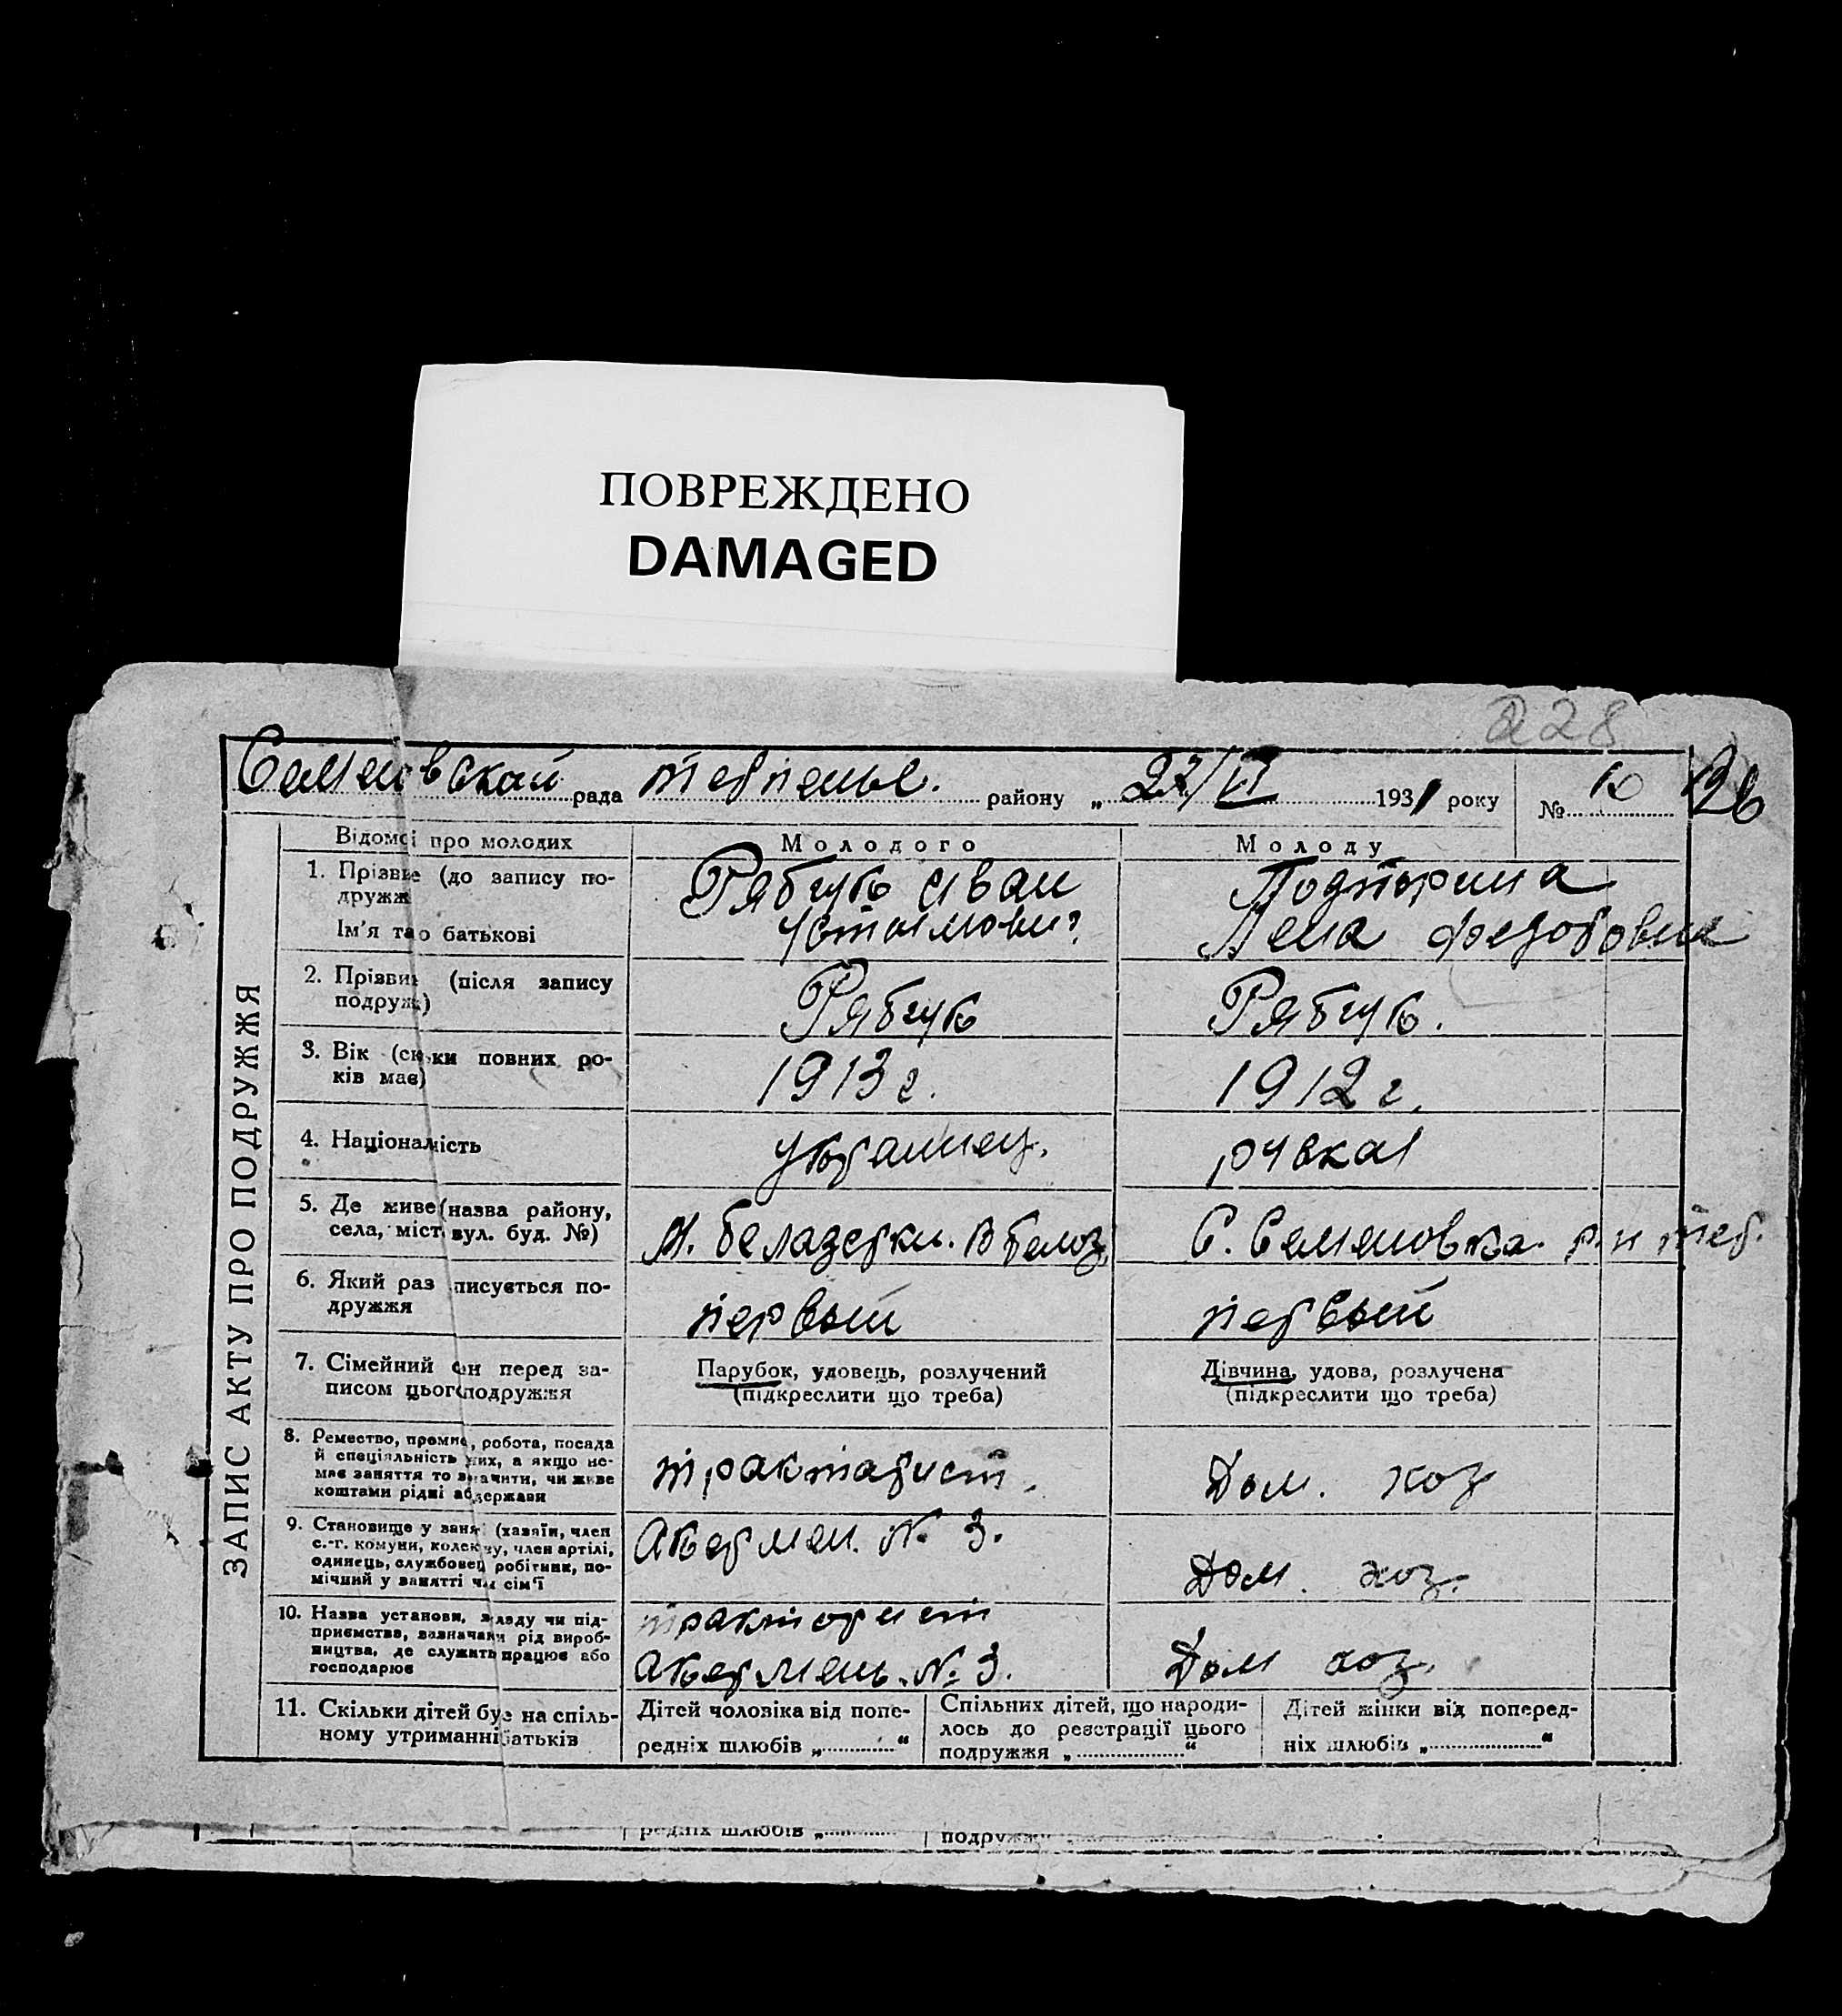 ПОВРЕЖДЕНО
DAMAGED
228
рада району „ 27/VI 1931 року № 10
ЗАПИС АКТУ ПРО ПОДРУЖЖЯ
Відомсі про молодих Молодого Молоду
1. Прізвще (до запису по-
дружж
Рябчук Иван
Ім'я та о батькові
Устымович
2. Прізвищ (після запису
подруж)
Рябчук Рябчук.
3. Вік (скьки повних ро-
ків має)
1913 г. 1912 г.
4. Національність Украинец. руская
5. Де живе (назва району,
села, міст вул. буд. №)
С. Семеновка.
6. Який раз писується по-
дружжя
первый первый
7. Сімейний ан перед за-
писом цього подружжя
Парубок, удовець, розлучений
(підкреслити що треба)
Дівчина, удова, розлучена
(підкреслити що треба)
8. Ремество, промис, робота, посада
й спеціяльність них, а якщо не-
має заняття то зазначити, чи живе
коштами рідні аб держави
трактарист. Дом. хоз
9. Становище у занят (хазяїн, член
с.-г. комуни, колекиву, член артілі,
одинець, службовец робітник, по-
мічний у занятті чм сім'ї
Акермен. № 3. Дом. хоз.
10. Назва установи, кладу чи під-
приємства, зазначаючи рід вироб-
ництва, де служить працює або
господарює
тракторист
Акермень. № 3. Дом хоз.
11. Скільки дітей буе на спіль-
ному утриманні батьків
Дітей чоловіка від попе-
редніх шлюбів „ “
Спільних дітей, що народи-
лось до реєстрації цього
подружжя „ “
Дітей жінки від поперед-
ніх шлюбів „ “
редніх шлюбів „ подружжя